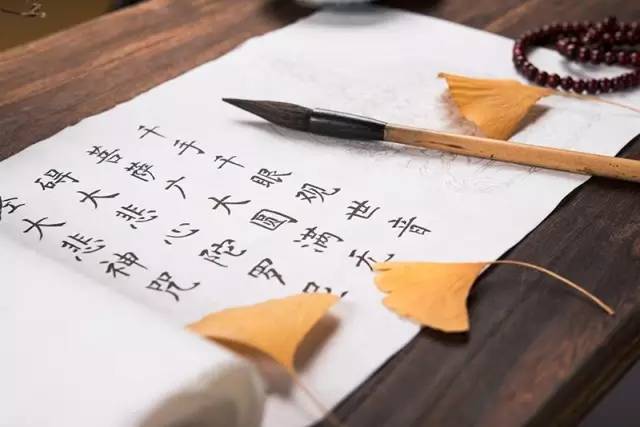 千手千眼观世音
菩萨广大圆满无
碍大悲心陀罗
大悲神咒